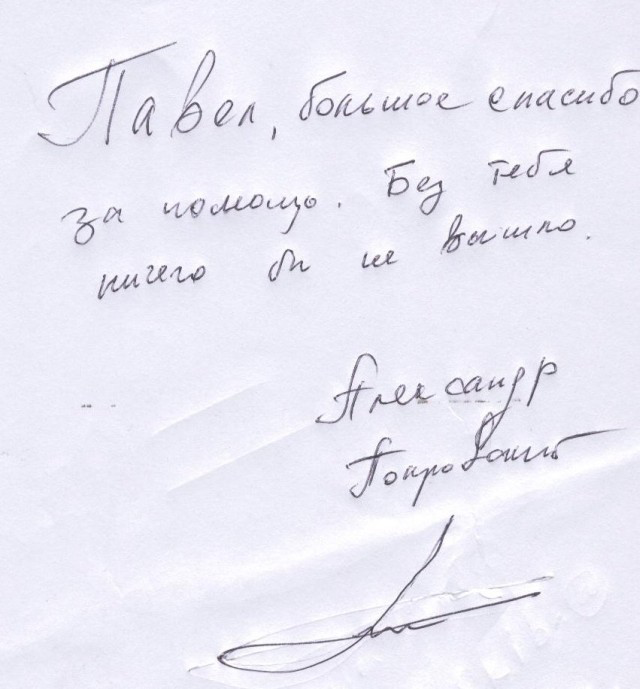 Павел, большое спасибо
за помощь. Без тебя
ничего бы не вышло.
Александр